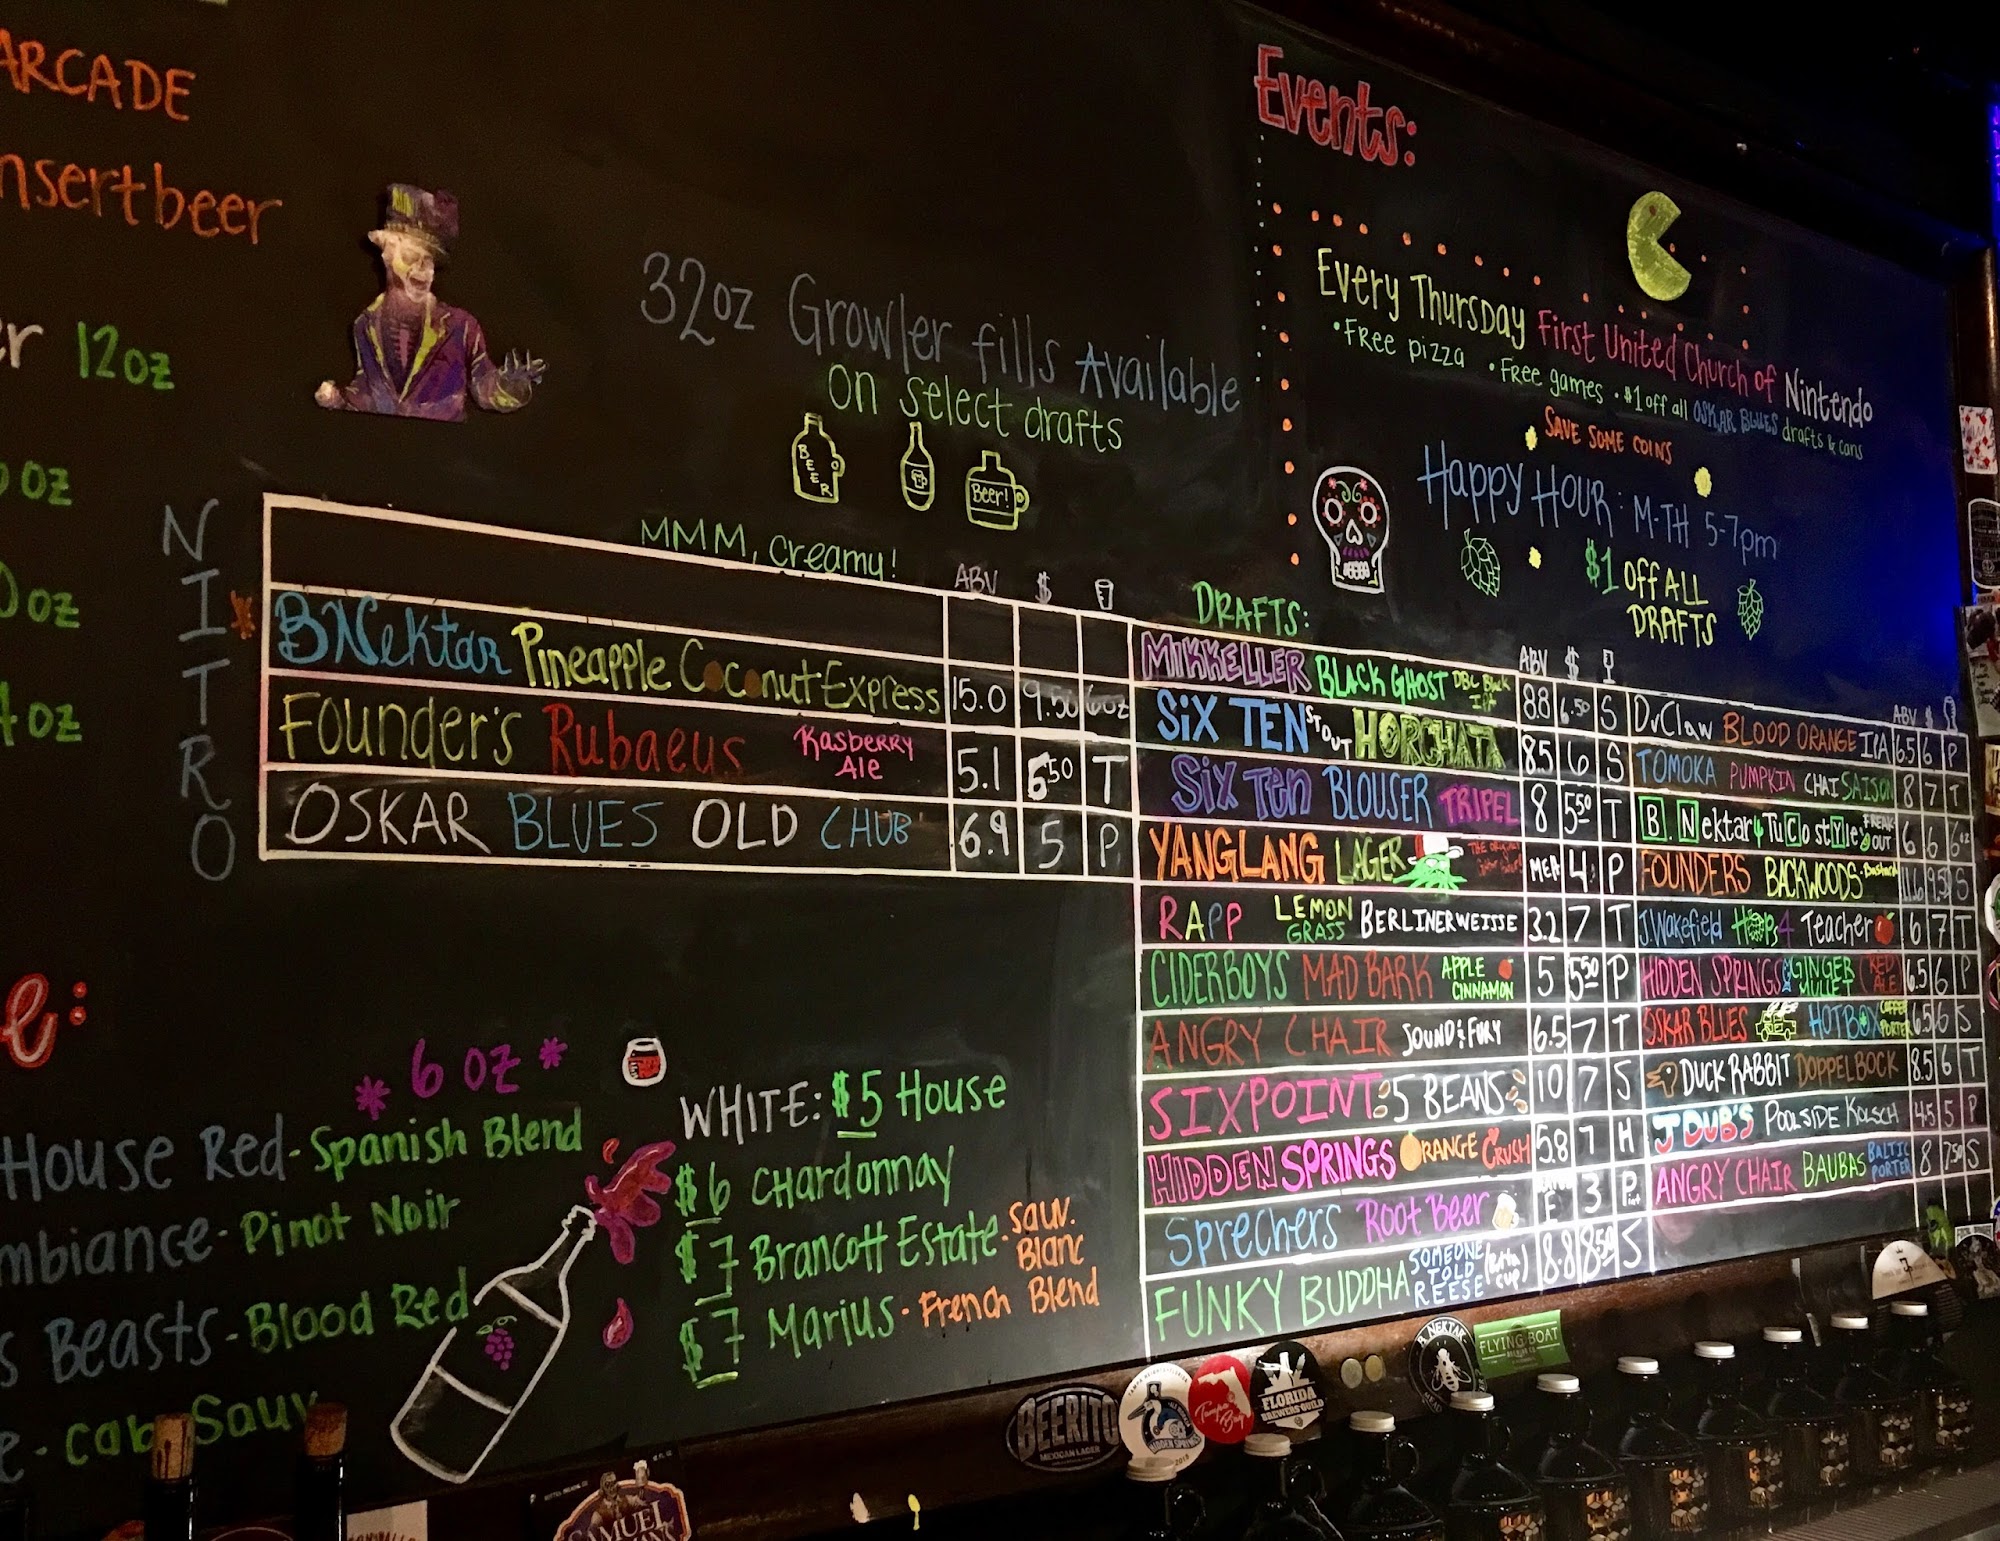 ARCADE
nsertbeer
12oz
oz
oz
oz
32oz Growler fills Available
on select drafts
BEER
Beer!
NITRO
MMM, creamy!
ABV $
B Nektar Pineapple Coconut Express 15.0 9.50 6oz
Founder's Rubaeus Rasberry Ale 5.1 5.50 T
OSKAR BLUES OLD CHUB 6.9 5 P
Events:
Every Thursday First United Church of Nintendo
•Free pizza •Free games •$1 off all OSKAR BLUES drafts & cans
SAVE SOME COINS
Happy Hour: M-TH 5-7pm
$1 OFF ALL
DRAFTS
DRAFTS:
ABV $
MIKKELLER BLACK GHOST DBL Black IPA 8.8 6.50 S
SIX TEN STOUT HORCHATA 8.5 6 S
SIX TEN BLOUSER TRIPEL 8 5.50 T
YANGLANG LAGER MEH 4 P
RAPP LEMON GRASS BERLINERWEISSE 3.2 7 T
CIDERBOYS MAD BARK APPLE CINNAMON 5 5.50 P
ANGRY CHAIR SOUND & FURY 6.5 7 T
SIXPOINT 5 BEANS 10 7 S
HIDDEN SPRINGS ORANGE CRUSH 5.8 7 H
Sprechers Root Beer E 3 Pint
FUNKY BUDDHA SOMEONE TOLD REESE 8.8 8.50 S
ABV $
DuClaw BLOOD ORANGE IPA 6.5 6 P
TOMOKA PUMPKIN CHAI SAISON 8 7 T
B. Nektar TuCo style FREAK OUT 6 6 6oz
FOUNDERS BACKWOODS Bastard 11.6 9.50 S
J.Wakefield Hops 4 Teacher 6 7 T
HIDDEN SPRINGS GINGER MULLET RED ALE 6.5 6 P
OSKAR BLUES HOTBOX COFFEE PORTER 6.5 6 S
DUCK RABBIT DOPPELBOCK 8.5 6 T
J DUB'S POOLSIDE KOLSCH 4.5 5 P
ANGRY CHAIR BAUBAS BALTIC PORTER 8 7.50 S
e:
* 6 oz *
House Red - Spanish Blend
mbiance - Pinot Noir
s Beasts - Blood Red
e - Cab Sauv
WHITE: $5 House
$6 Chardonnay
$7 Brancott Estate - Sauv. Blanc
$7 Marius - French Blend
BEERITO
MEXICAN LAGER
HIDDEN SPRINGS
Tampa Bay
FLORIDA
BREWERS GUILD
B. NEKTAR
MEAD
FLYING BOAT
SAMUEL